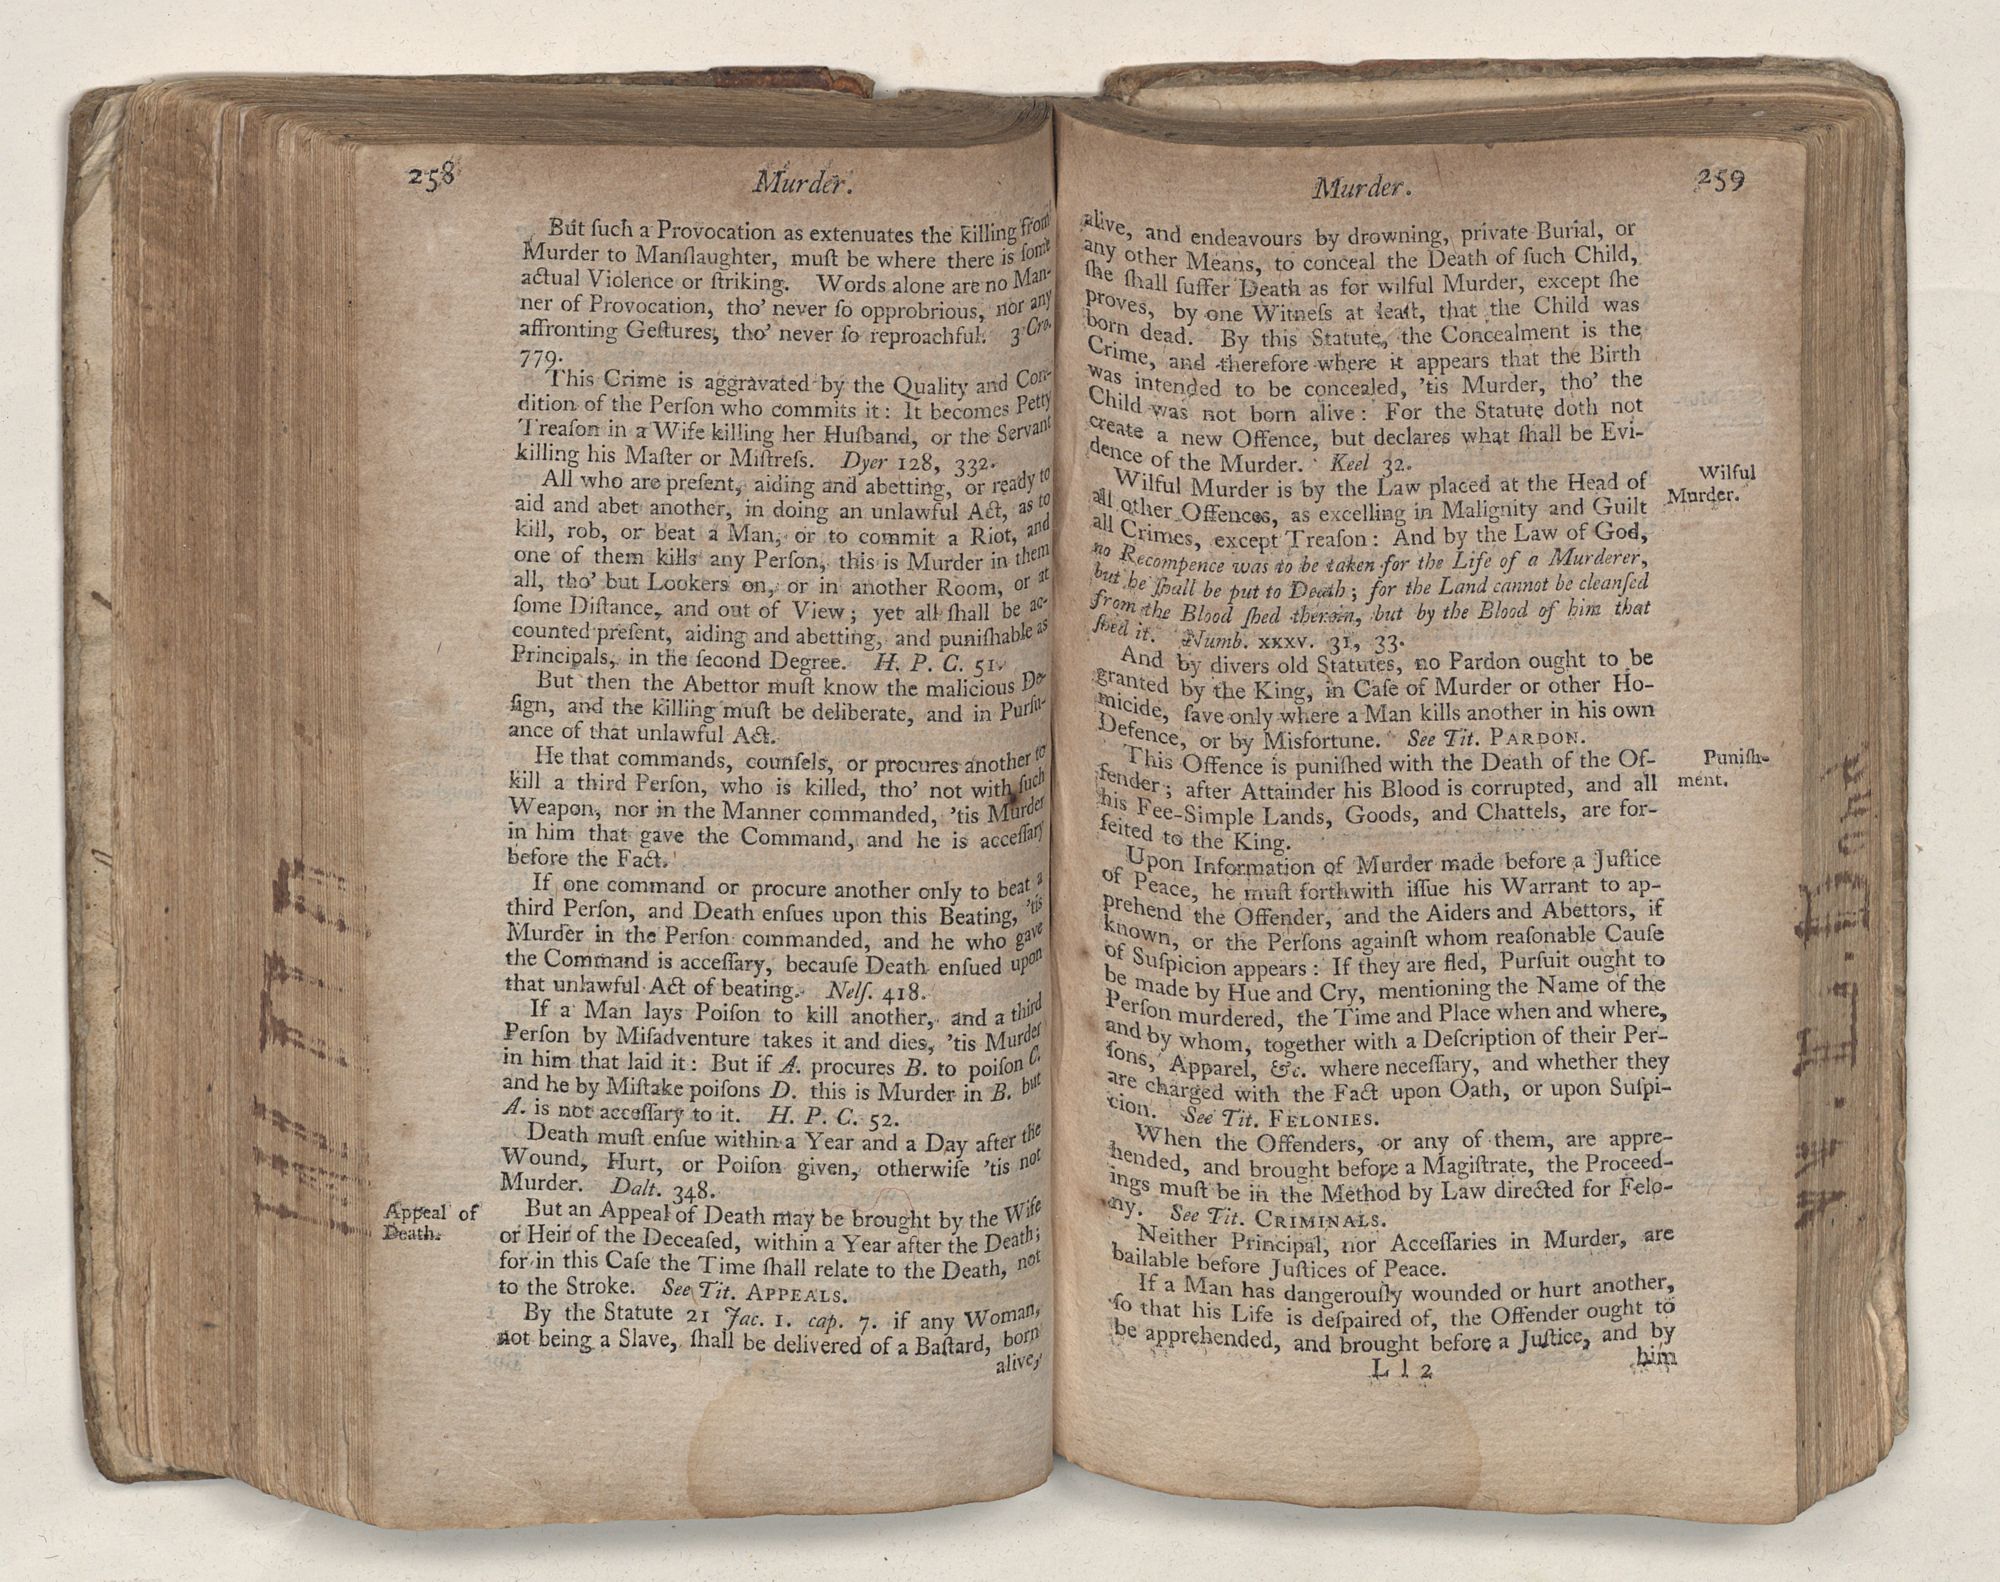 258
Murder.
But ſuch a Provocation as extenuates the killing from
Murder to Manſlaughter, muſt be where there is ſome
actual Violence or ſtriking. Words alone are no Man-
ner of Provocation, tho' never ſo opprobrious, nor any
affronting Geſtures, tho' never ſo reproachful. 3 Cro.
779.
This Crime is aggravated by the Quality and Con-
dition of the Perſon who commits it: It becomes Petty
Treaſon in a Wife killing her Huſband, or the Servant
killing his Maſter or Miſtreſs. Dyer 128, 332.
All who are preſent, aiding and abetting, or ready to
aid and abet another, in doing an unlawful Act, as to
kill, rob, or beat a Man, or to commit a Riot, and
one of them kills any Perſon, this is Murder in them
all, tho' but Lookers on, or in another Room, or at
ſome Diſtance, and out of View; yet all ſhall be ac-
counted preſent, aiding and abetting, and puniſhable as
Principals, in the ſecond Degree. H. P. C. 51.
But then the Abettor muſt know the malicious De-
ſign, and the killing muſt be deliberate, and in Purſu-
ance of that unlawful Act.
He that commands, counſels, or procures another to
kill a third Perſon, who is killed, tho' not with ſuch
Weapon, nor in the Manner commanded, 'tis Murder
in him that gave the Command, and he is acceſſary
before the Fact.
If one command or procure another only to beat a
third Perſon, and Death enſues upon this Beating, 'tis
Murder in the Perſon commanded, and he who gave
the Command is acceſſary, becauſe Death enſued upon
that unlawful Act of beating. Nelſ. 418.
If a Man lays Poiſon to kill another, and a third
Perſon by Miſadventure takes it and dies, 'tis Murder
in him that laid it: But if A. procures B. to poiſon C.
and he by Miſtake poiſons D. this is Murder in B. but
A. is not acceſſary to it. H. P. C. 52.
Death muſt enſue within a Year and a Day after the
Wound, Hurt, or Poiſon given, otherwiſe 'tis not
Murder. Dalt. 348.
Appeal of
Death.
But an Appeal of Death may be brought by the Wife
or Heir of the Deceaſed, within a Year after the Death;
for in this Caſe the Time ſhall relate to the Death, not
to the Stroke. See Tit. APPEALS.
By the Statute 21 Jac. 1. cap. 7. if any Woman,
not being a Slave, ſhall be delivered of a Baſtard, born
alive,
Murder.
259
alive, and endeavours by drowning, private Burial, or
any other Means, to conceal the Death of ſuch Child,
ſhe ſhall ſuffer Death as for wilful Murder, except ſhe
proves, by one Witneſs at leaſt, that the Child was
born dead. By this Statute, the Concealment is the
Crime, and therefore where it appears that the Birth
was intended to be concealed, 'tis Murder, tho' the
Child was not born alive: For the Statute doth not
create a new Offence, but declares what ſhall be Evi-
dence of the Murder. Keel 32.
Wilful
Murder.
Wilful Murder is by the Law placed at the Head of
all other Offences, as excelling in Malignity and Guilt
all Crimes, except Treaſon: And by the Law of God,
no Recompence was to be taken for the Life of a Murderer,
but he ſhall be put to Death; for the Land cannot be cleanſed
from the Blood ſhed therein, but by the Blood of him that
ſhed it. Numb. XXXV. 31, 33.
And by divers old Statutes, no Pardon ought to be
granted by the King, in Caſe of Murder or other Ho-
micide, ſave only where a Man kills another in his own
Defence, or by Misfortune. See Tit. PARDON.
Puniſh-
ment.
This Offence is puniſhed with the Death of the Of-
fender; after Attainder his Blood is corrupted, and all
his Fee-Simple Lands, Goods, and Chattels, are for-
feited to the King.
Upon Information of Murder made before a Juſtice
of Peace, he muſt forthwith iſſue his Warrant to ap-
prehend the Offender, and the Aiders and Abettors, if
known, or the Perſons againſt whom reaſonable Cauſe
of Suſpicion appears: If they are fled, Purſuit ought to
be made by Hue and Cry, mentioning the Name of the
Perſon murdered, the Time and Place when and where,
and by whom, together with a Deſcription of their Per-
ſons, Apparel, &c. where neceſſary, and whether they
are charged with the Fact upon Oath, or upon Suſpi-
cion. See Tit. FELONIES.
When the Offenders, or any of them, are appre-
hended, and brought before a Magiſtrate, the Proceed-
ings muſt be in the Method by Law directed for Felo-
ny. See Tit. CRIMINALS.
Neither Principal, nor Acceſſaries in Murder, are
bailable before Juſtices of Peace.
If a Man has dangerouſly wounded or hurt another,
ſo that his Life is deſpaired of, the Offender ought to
be apprehended, and brought before a Juſtice, and by
L l 2
him